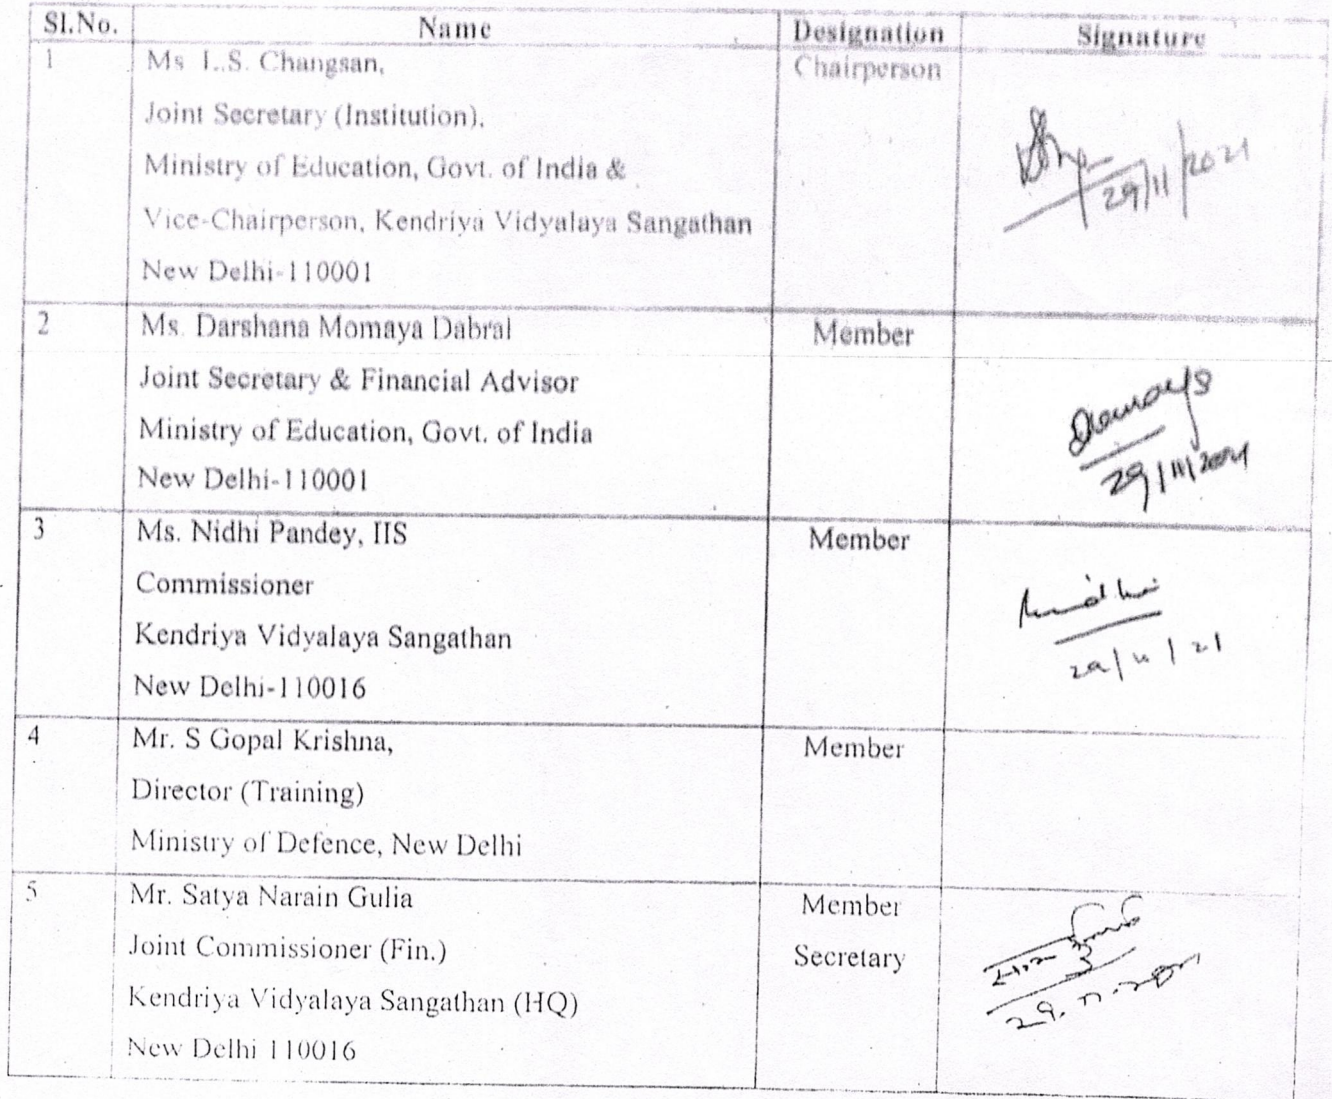 Sl.No. Name Designation Signature
1 Ms L.S. Changsan, Chairperson
Joint Secretary (Institution),
Ministry of Education, Govt. of India &
Vice-Chairperson, Kendriya Vidyalaya Sangathan
New Delhi-110001
29/11/2021
2 Ms. Darshana Momaya Dabral Member
Joint Secretary & Financial Advisor
Ministry of Education, Govt. of India
New Delhi-110001
29/11/2021
3 Ms. Nidhi Pandey, IIS Member
Commissioner
Kendriya Vidyalaya Sangathan
New Delhi-110016
Nidhi
29/11/21
4 Mr. S Gopal Krishna, Member
Director (Training)
Ministry of Defence, New Delhi
5 Mr. Satya Narain Gulia Member
Joint Commissioner (Fin.) Secretary
Kendriya Vidyalaya Sangathan (HQ)
New Delhi 110016
29.11.2021